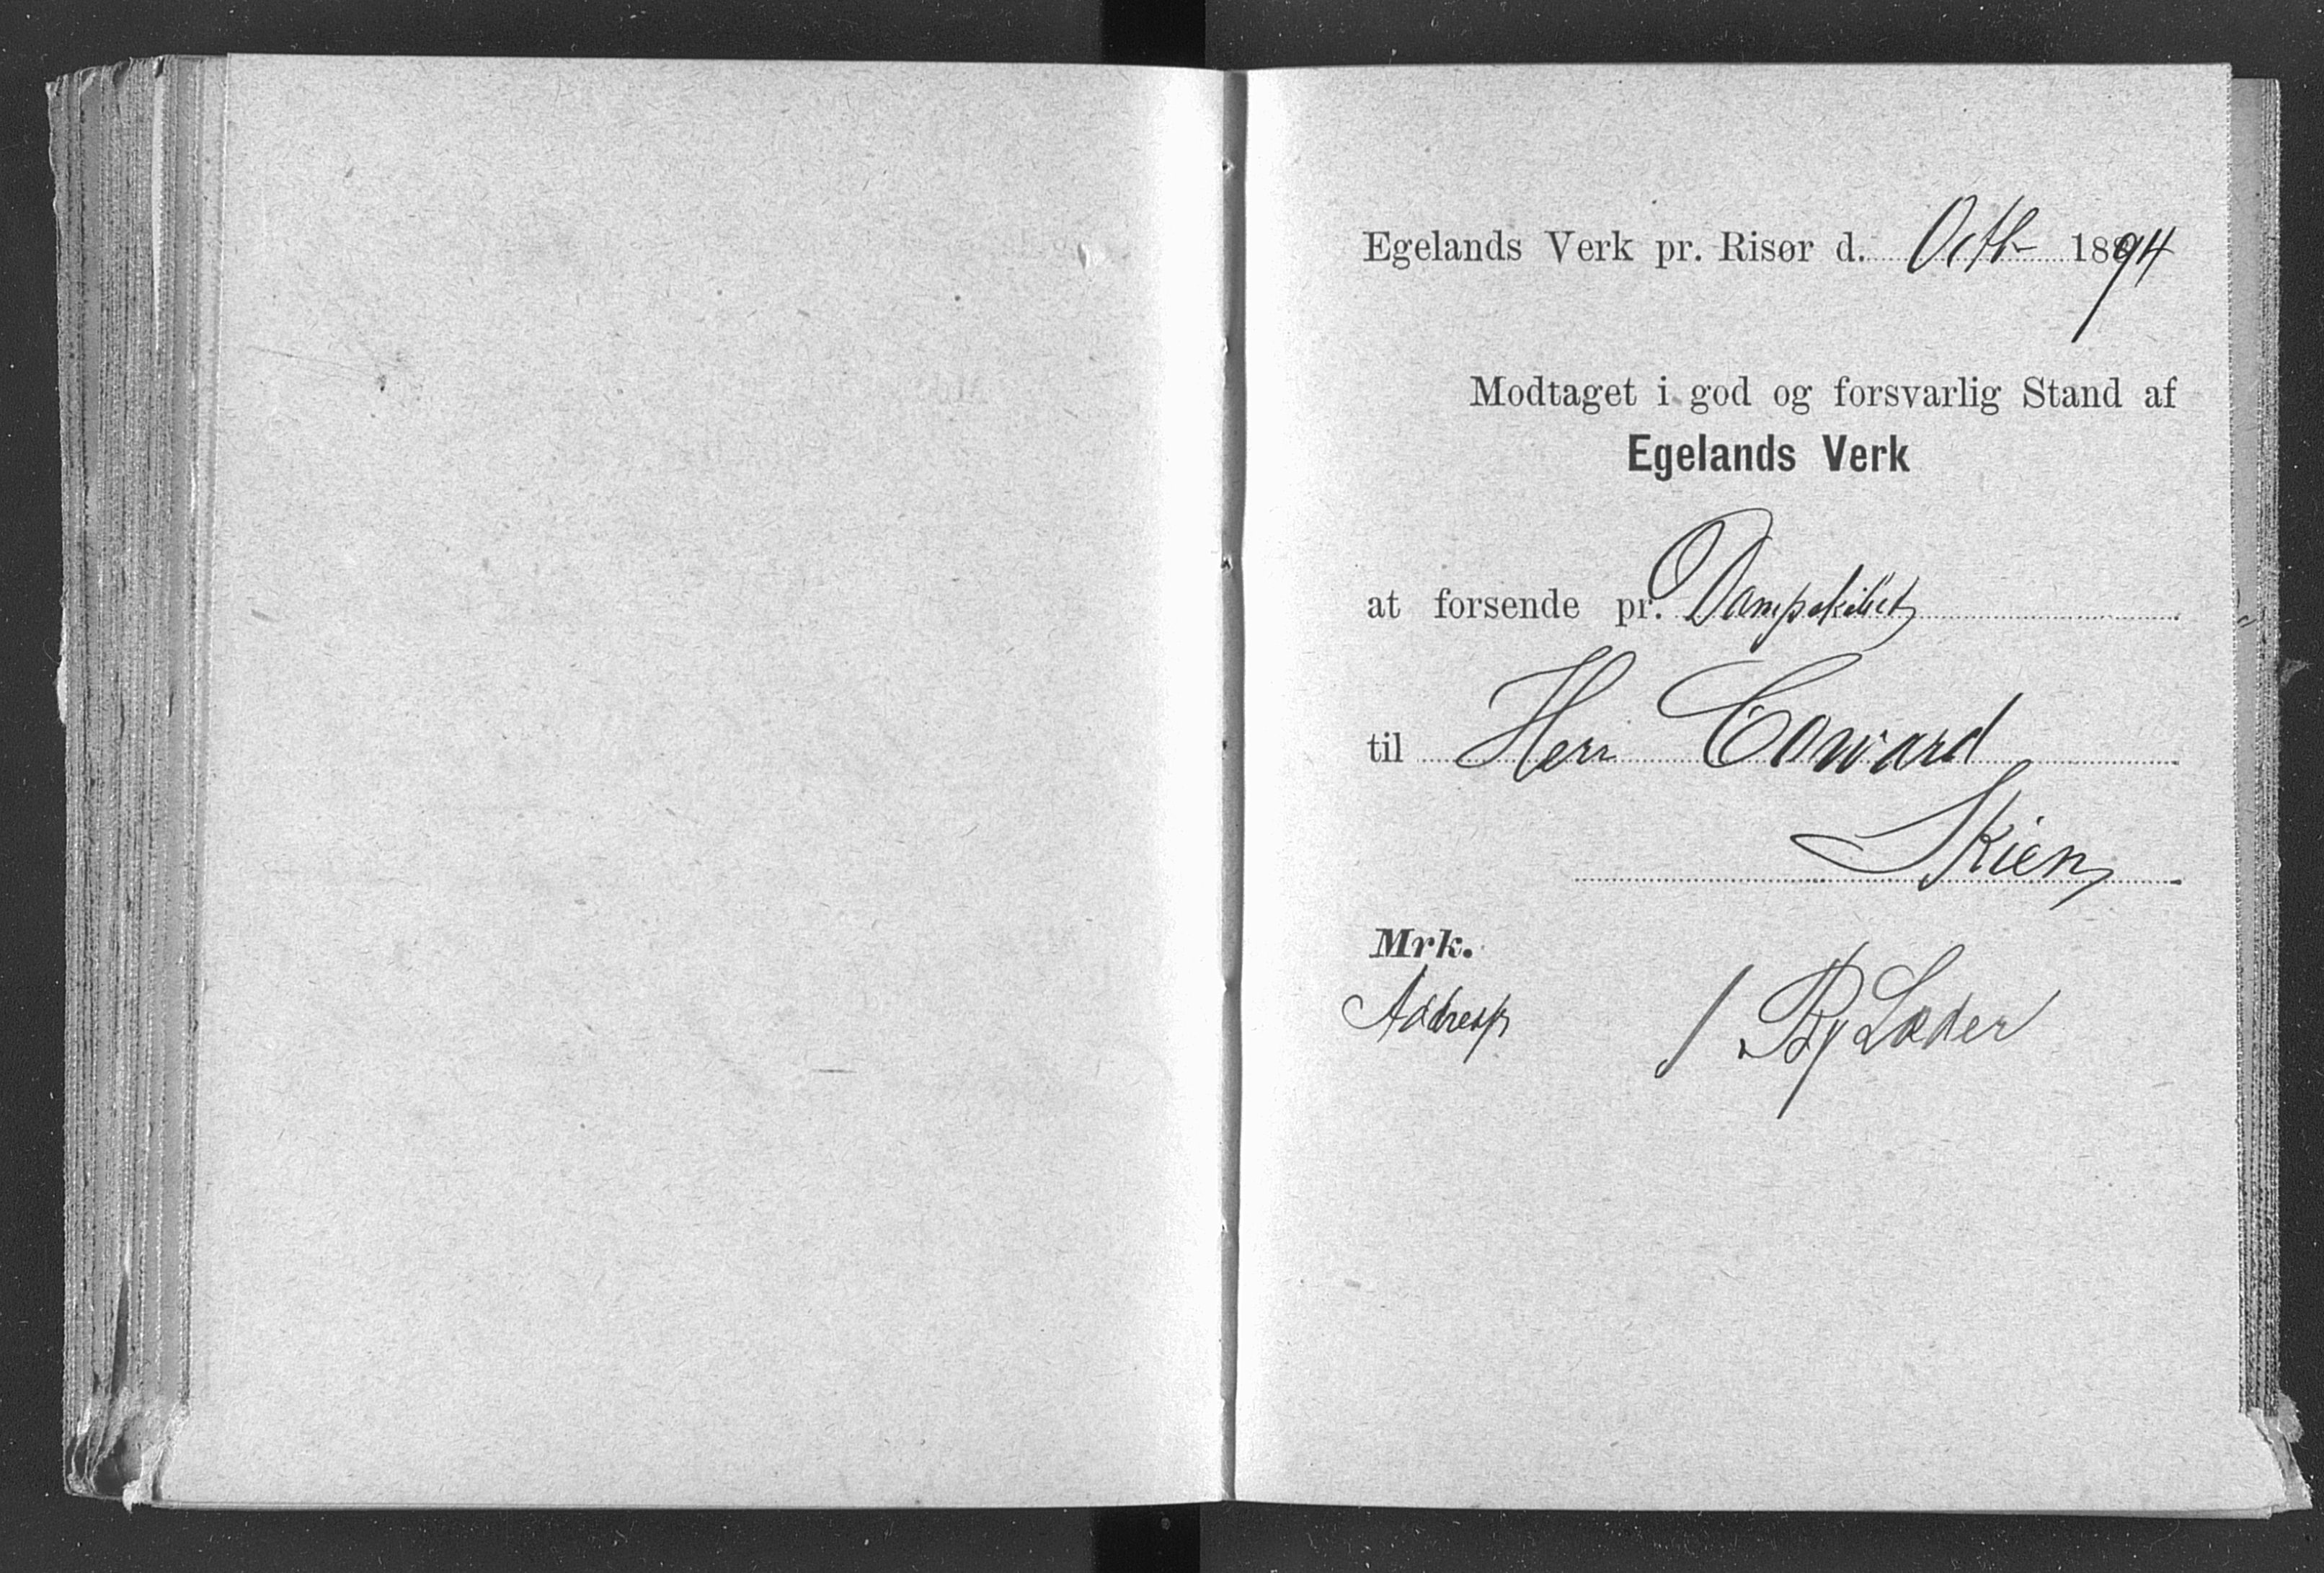 Egelands Verk pr. Risør d. Octb 1894
Modtaget i god og forsvarlig Stand af
Egelands Verk
at forsende pr. Dampskibet
til Herr Coward
Skien
Mrk.
Address 1 Læder